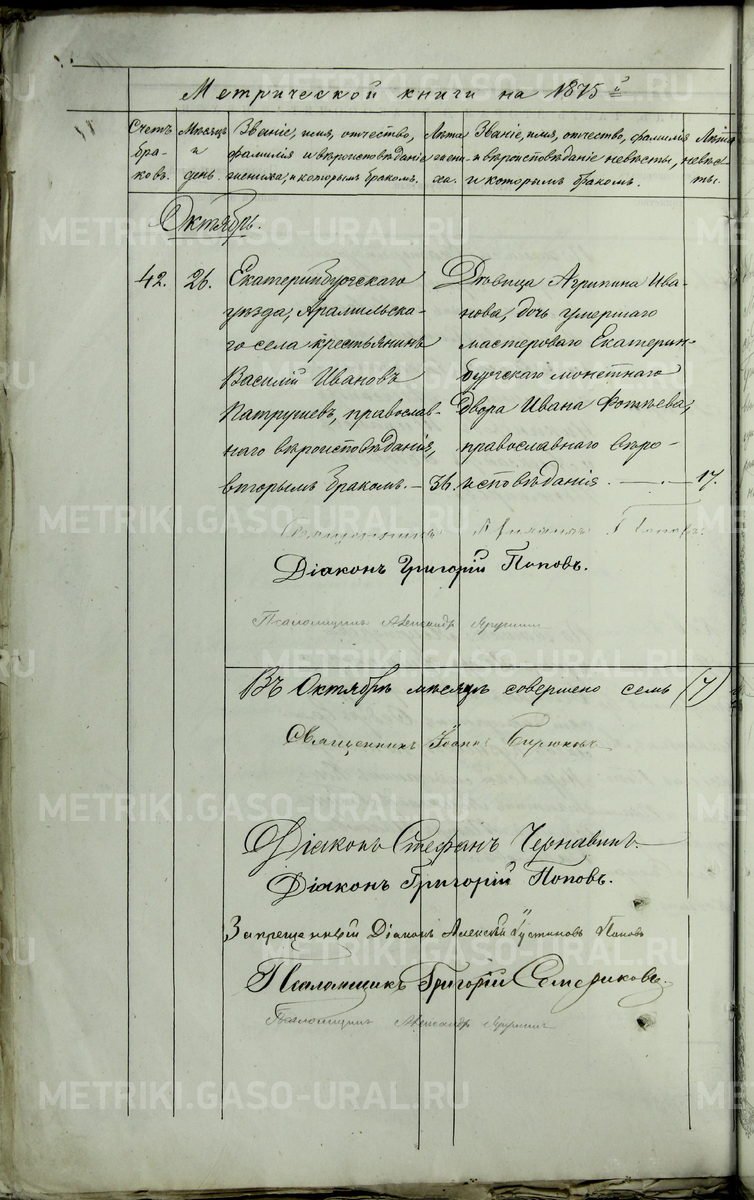 Метрической книги на 1875й
Счетъ бра- ковъ.
Мѣсяцъ и день.
Званіе, имя, отчество, фамилія и вѣроисповѣданіе жениха, и которымъ бракомъ.
Лѣта жениха.
Званіе, имя, отчество, фамилія и вѣроисповѣданіе невѣсты, и которымъ бракомъ.
Лѣта невѣсты.
Октябрь.
42. 26.
Екатеринбургскаго
уѣзда, Арамильска-
го села крестьянинъ
Василій Ивановъ
Патрушевъ, православ-
наго вѣроисповѣданія,
вторымъ бракомъ. — 36.
Дѣвица Агрипина Ива-
нова, дочь умершаго
мастероваго Екатерин-
бургскаго монетнаго
Двора Ивана
православнаго вѣро-
исповѣданія. — 17.
Священникъ Попов
Діаконъ Григорій Поповъ.
Псаломщикъ Александръ
Въ Октябрѣ мѣсяцѣ совершено семь (7)
Священникъ Іоаннъ Бирюковъ
Діаконъ Стефанъ Чернавинъ.
Діаконъ Григорій Поповъ.
Запрещенный Діаконъ Алексѣй Іустиновъ Поповъ
Псаломщикъ Григорій Семериковъ.
Псаломщикъ Александръ
METRIKI.GASO-URAL.RU